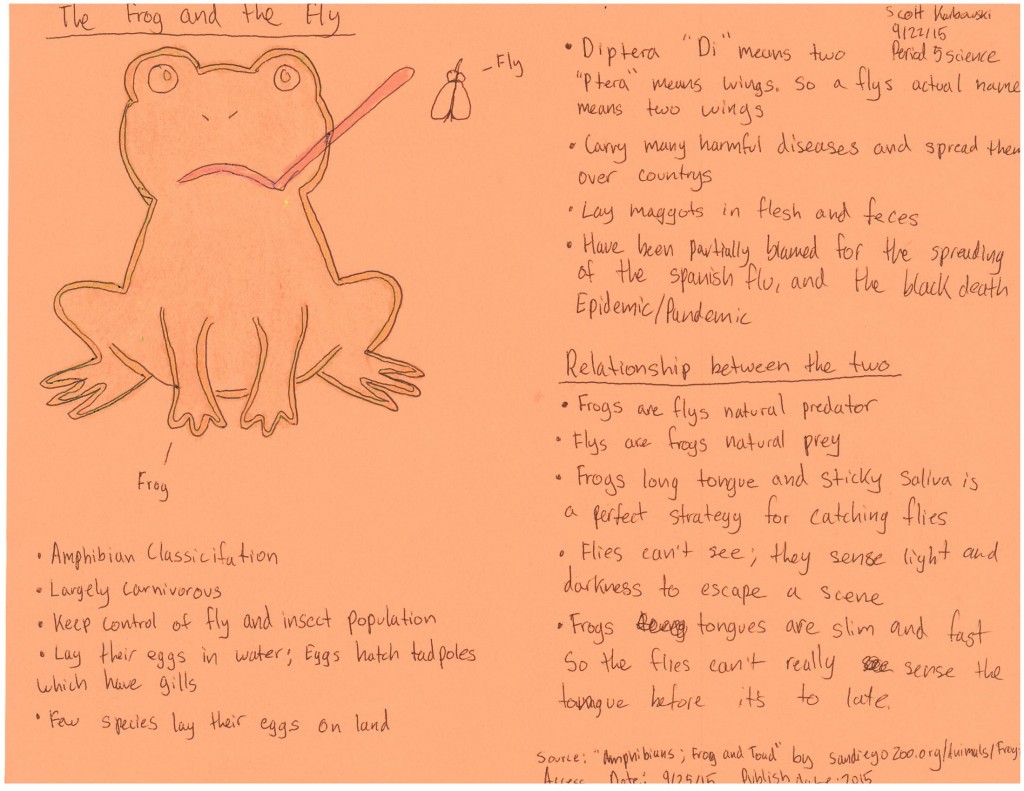 The Frog and the Fly
Fly
Frog
• Amphibian Classicifation
• Largely carnivorous
• Keep control of fly and insect population
• Lay their eggs in water; Eggs hatch tadpoles
which have gills
• Few species lay their eggs on land
Scott
9/22/15
Period 5 Science
• Diptera "Di" means two
"Ptera" means wings. So a flys actual name
means two wings
• Carry many harmful diseases and spread them
over countrys
• Lay maggots in flesh and feces
• Have been partially blamed for the spreading
of the spanish flu, and the black death
Epidemic/Pandemic
Relationship between the two
• Frogs are flys natural predator
• Flys are frogs natural prey
• Frogs long tongue and sticky saliva is
a perfect strategy for catching flies
• Flies can't see; they sense light and
darkness to escape a scene
• Frogs tongues are slim and fast
So the flies can't really sense the
tongue before it's to late.
Source: "Amphibians; Frog and Toad" by sandiegozoo.org/Animals/Frog
Access Date: 9/25/15 Publish date: 2015